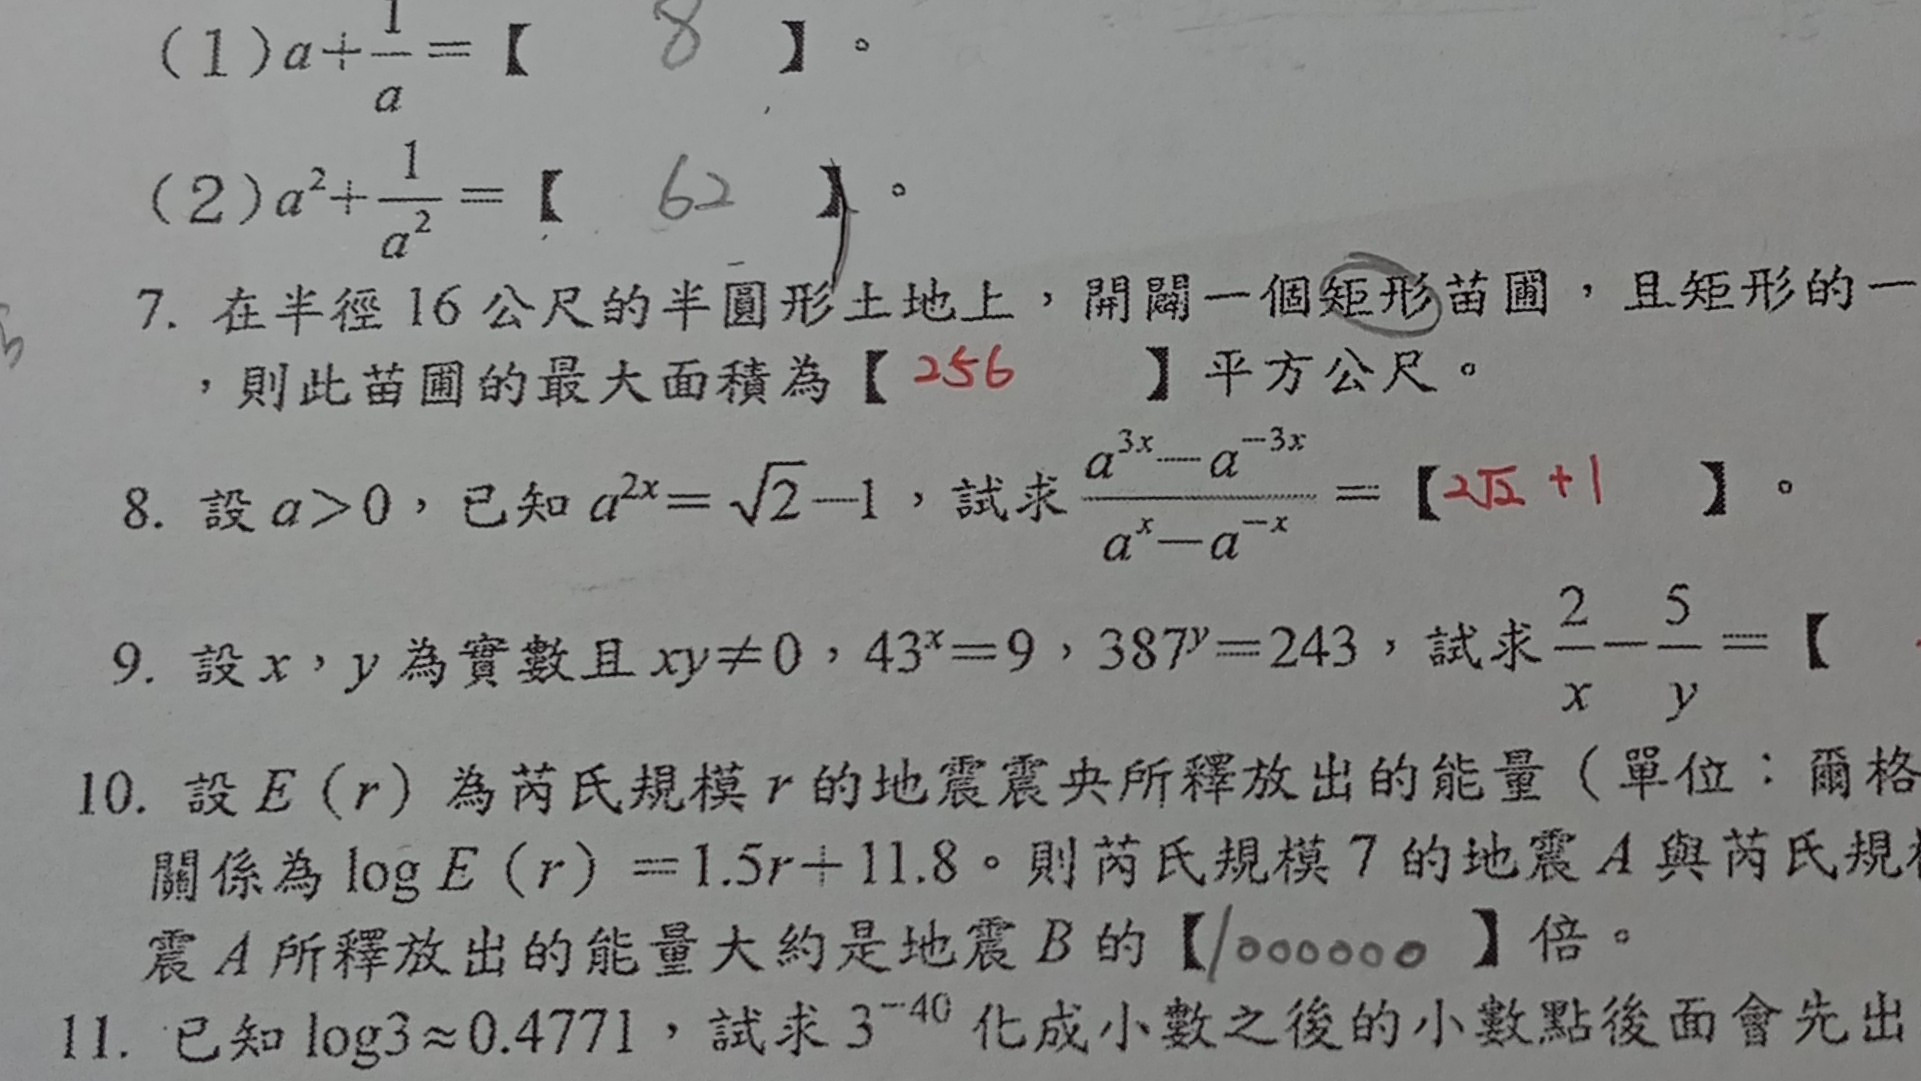 (1) a+1/a=【 8 】。
(2) a²+1/a²=【 62 】。
7. 在半徑16公尺的半圓形土地上,開闢一個矩形苗圃,且矩形的一
,則此苗圃的最大面積為【 256 】平方公尺。
8. 設a>0,已知a^{2x}=√2−1,試求(a^{3x}−a^{−3x})/(a^x−a^{−x})=【2√2+1 】。
9. 設x,y為實數且xy≠0,43^x=9,387^y=243,試求2/x−5/y=【
10. 設E(r)為芮氏規模r的地震震央所釋放出的能量(單位:爾格
關係為log E(r)=1.5r+11.8。則芮氏規模7的地震A與芮氏規
震A所釋放出的能量大約是地震B的【1000000】倍。
11. 已知log3≈0.4771,試求3^{−40}化成小數之後的小數點後面會先出